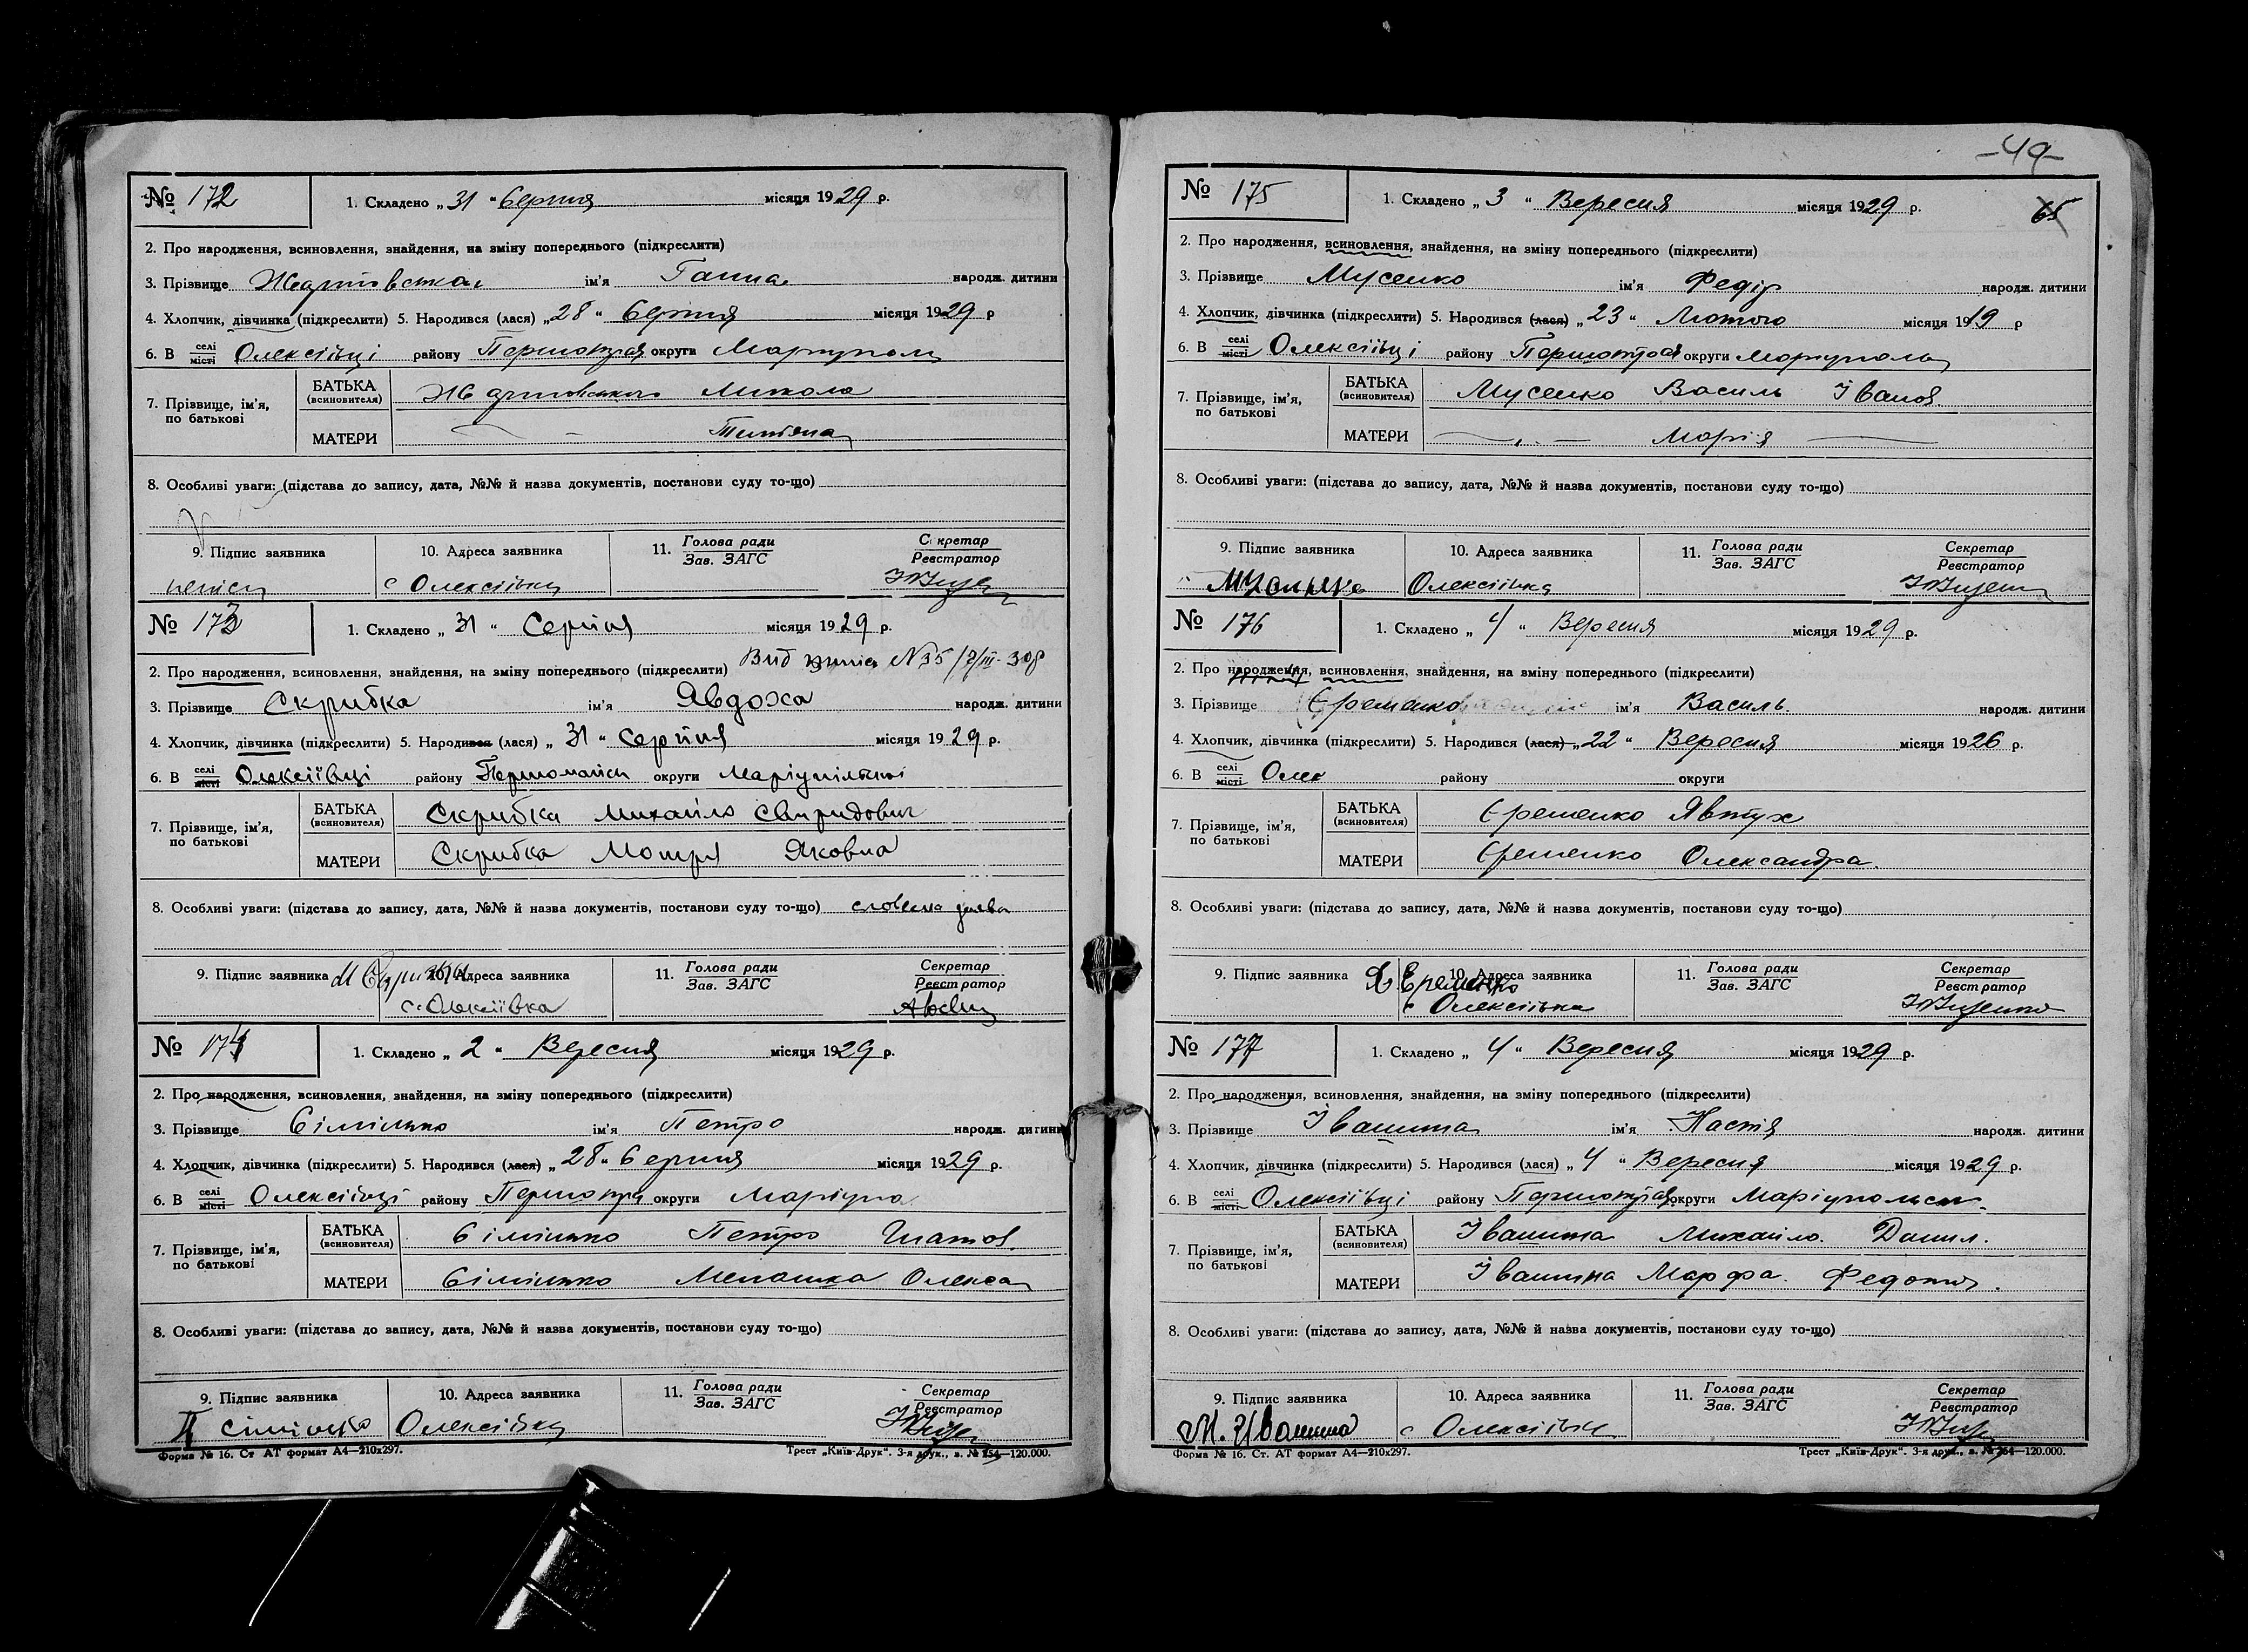 № 172
1. Складено „ 31 “ Серпня місяця 1929 р.
2. Про народження, всиновлення, знайдення, на зміну попереднього (підкреслити)
3. Прізвище ім'я Ганна народж. дитини
4. Хлопчик, дівчинка (підкреслити) 5. Народився (лася) „ 28 “ Серпня місяця 1929 р
6. В селі місті Олексіївці району округи
7. Прізвище, ім'я, по батькові
БАТЬКА (всиновителя) Микола
МАТЕРИ
8. Особливі уваги: (підстава до запису, дата, №№ й назва документів, постанови суду то-що)
9. Підпис заявника 10. Адреса заявника 11. Голова ради Зав. ЗАГС Секретар Реєстратор
с Олексіївка
№ 173
1. Складено „ 31 “ Серпня місяця 1929 р.
2. Про народження, всиновлення, знайдення, на зміну попереднього (підкреслити)
3. Прізвище Скрибка ім'я Явдоха народж. дитини
4. Хлопчик, дівчинка (підкреслити) 5. Народився (лася) „ 31 “ Серпня місяця 1929 р.
6. В селі місті Олексіївці району Першомайськ округи
7. Прізвище, ім'я, по батькові
БАТЬКА (всиновителя) Скрибка Михайло Свиридович
МАТЕРИ Скрибка Мотря Яковна
8. Особливі уваги: (підстава до запису, дата, №№ й назва документів, постанови суду то-що) словесна заява
9. Підпис заявника 10. Адреса заявника 11. Голова ради Зав. ЗАГС Секретар Реєстратор
с. Олексіївка
№ 174
1. Складено „ 2 “ Вересня місяця 1929 р.
2. Про народження, всиновлення, знайдення, на зміну попереднього (підкреслити)
3. Прізвище Сімілько ім'я Петро народж. дитини
4. Хлопчик, дівчинка (підкреслити) 5. Народився (лася) „ 28 “ Серпня місяця 1929 р.
6. В селі місті Олексіївці району округи Маріупо
7. Прізвище, ім'я, по батькові
БАТЬКА (всиновителя) Сімілько Петро
МАТЕРИ Сімілько Мелашка Олекса
8. Особливі уваги: (підстава до запису, дата, №№ й назва документів, постанови суду то-що)
9. Підпис заявника 10. Адреса заявника 11. Голова ради Зав. ЗАГС Секретар Реєстратор
Олексіївка
Форма № 16. Ст АТ формат А4—210х297. Трест „Київ-Друк“. 3-я друк., з. № 254—120.000.
-49-
65
№ 175
1. Складено „ 3 “ Вересня місяця 1929 р.
2. Про народження, всиновлення, знайдення, на зміну попереднього (підкреслити)
3. Прізвище Мусенко ім'я Федір народж. дитини
4. Хлопчик, дівчинка (підкреслити) 5. Народився (лася) „ 23 “ Лютого місяця 1919 р
6. В селі місті Олексіївці району округи Маріуполь
7. Прізвище, ім'я, по батькові
БАТЬКА (всиновителя) Мусенко Василь Іванов.
МАТЕРИ — „ — Марія
8. Особливі уваги: (підстава до запису, дата, №№ й назва документів, постанови суду то-що)
9. Підпис заявника 10. Адреса заявника 11. Голова ради Зав. ЗАГС Секретар Реєстратор
Олексіївка
№ 176
1. Складено „ 4 “ Вересня місяця 1929 р.
2. Про народження, всиновлення, знайдення, на зміну попереднього (підкреслити)
3. Прізвище Єременко ім'я Василь. народж. дитини
4. Хлопчик, дівчинка (підкреслити) 5. Народився (лася) „ 22 “ Вересня місяця 1926 р.
6. В селі місті Олек району округи
7. Прізвище, ім'я, по батькові
БАТЬКА (всиновителя) Єременко Явтух
МАТЕРИ Єременко Олександра.
8. Особливі уваги: (підстава до запису, дата, №№ й назва документів, постанови суду то-що)
9. Підпис заявника 10. Адреса заявника 11. Голова ради Зав. ЗАГС Секретар Реєстратор
Єременко с Олексіївка
№ 177
1. Складено „ 4 “ Вересня місяця 1929 р.
2. Про народження, всиновлення, знайдення, на зміну попереднього (підкреслити)
3. Прізвище Івашина ім'я Настя народж. дитини
4. Хлопчик, дівчинка (підкреслити) 5. Народився (лася) „ 4 “ Вересня місяця 1929 р.
6. В селі місті Олексіївці району округи Маріупольськ.
7. Прізвище, ім'я, по батькові
БАТЬКА (всиновителя) Івашина Михайло. Данил.
МАТЕРИ Івашина Марфа. Федотов.
8. Особливі уваги: (підстава до запису, дата, №№ й назва документів, постанови суду то-що)
9. Підпис заявника 10. Адреса заявника 11. Голова ради Зав. ЗАГС Секретар Реєстратор
М. Ивашина с Олексіївк
Форма № 16. Ст. АТ формат А4—210х297. Трест „Київ-Друк“. 3-я друк., з. № 254—120.000.